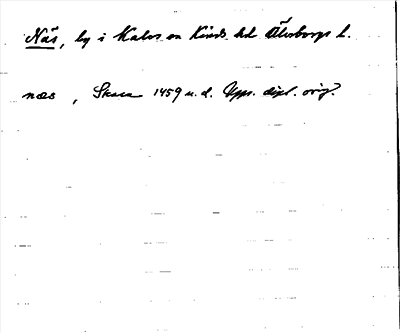 Näs, by i Kalvs sn Kinds hd Älvsborgs l.
næs , Skara 1459 u. d. Upps. dipl. orig.